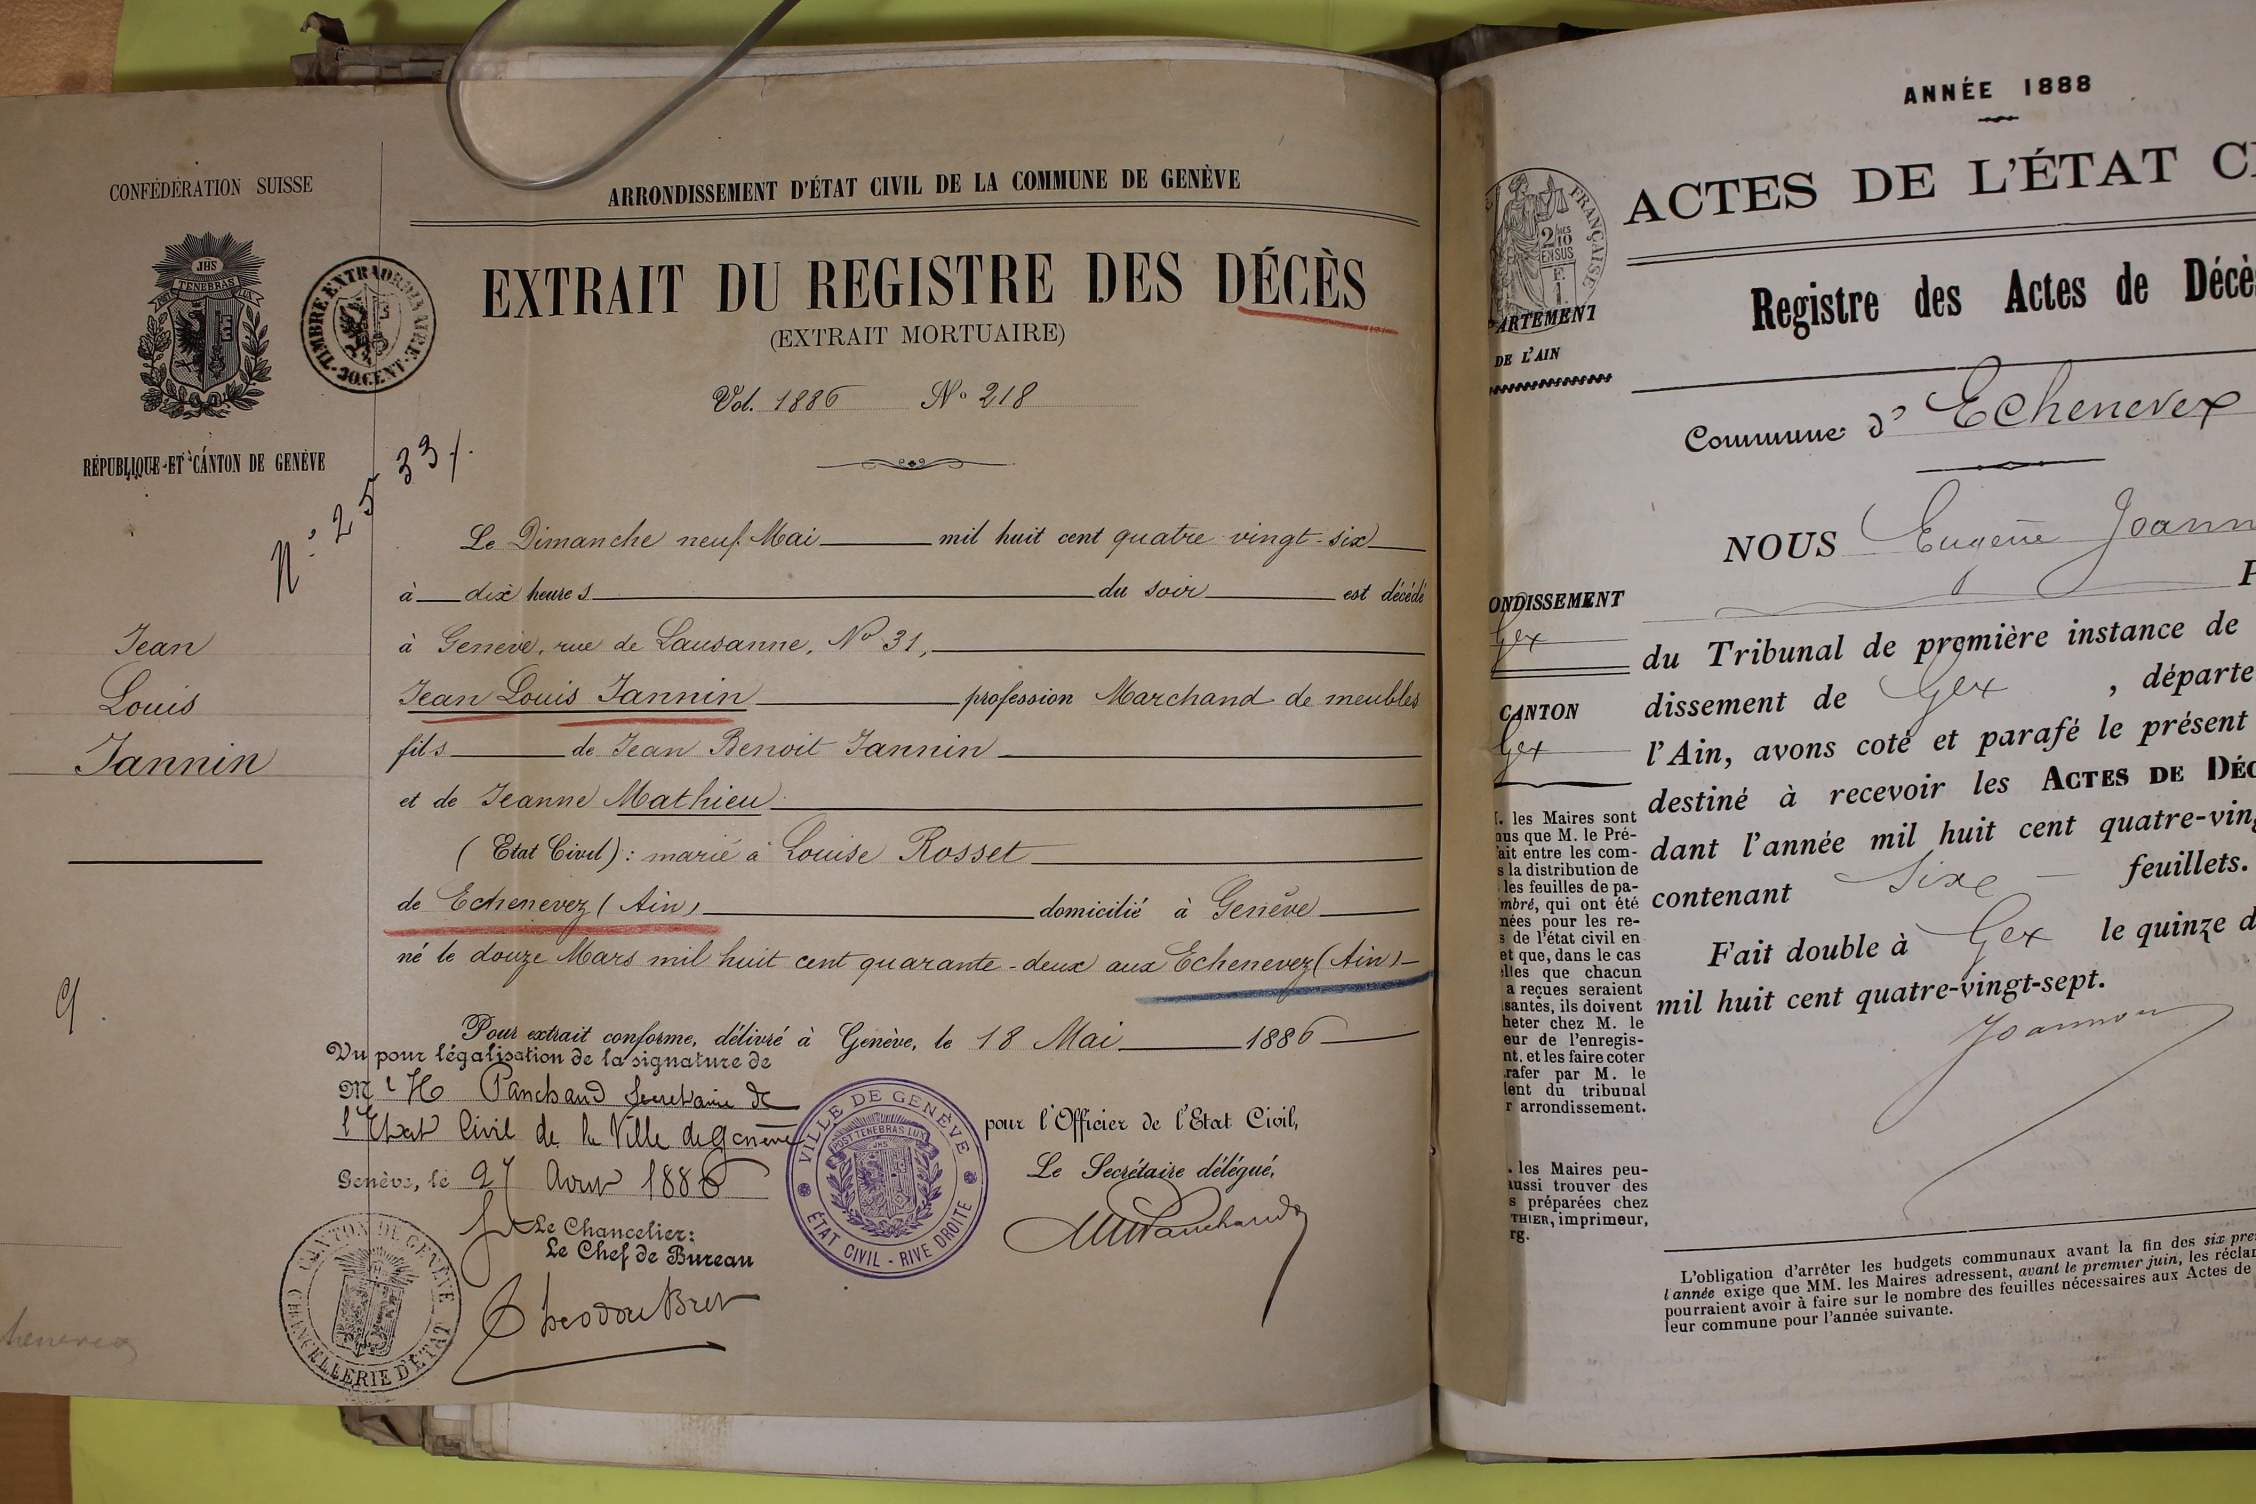 CONFÉDÉRATION SUISSE
JHS
POST TENEBRAS LUX
RÉPUBLIQUE ET CANTON DE GENÈVE
TIMBRE EXTRAORDINAIRE
30 CENT.
N° 25 331.
Jean
Louis
Jannin
ARRONDISSEMENT D'ÉTAT CIVIL DE LA COMMUNE DE GENÈVE
EXTRAIT DU REGISTRE DES DÉCÈS
(EXTRAIT MORTUAIRE)
Vol. 1886 N° 218
Le Dimanche neuf Mai mil huit cent quatre vingt-six
à dix heures du soir est décédé
à Genève, rue de Lausanne, N° 31,
Jean Louis Jannin profession Marchand de meubles
fils de Jean Benoit Jannin
et de Jeanne Mathieu
(Etat Civil): marié à Louise Rosset
de Echenevez (Ain) domicilié à Genève
né le douze Mars mil huit cent quarante-deux aux Echenevez (Ain)
Pour extrait conforme, délivré à Genève, le 18 Mai 1886
Vu pour légalisation de la signature de
Mr H Panchaud Secretaire de
l'Etat Civil de la Ville de Genève
Genève, le 27 Aout 1886
Le Chancelier:
Le Chef de Bureau
Theodore Bret
CANTON DE GENÈVE
CHANCELLERIE D'ÉTAT
VILLE DE GENÈVE
POST TENEBRAS LUX
JHS
ÉTAT CIVIL - RIVE DROITE
pour l'Officier de l'Etat Civil,
Le Secrétaire délégué,
Panchaud
ANNÉE 1888
ACTES DE L'ÉTAT C
Registre des Actes de Décè
FRANÇAISE
2/10
EN SUS
ARTEMENT
DE L'AIN
Commune d'Echenevex
NOUS Eugène Joann
P
ONDISSEMENT
Gex
CANTON
Gex
du Tribunal de première instance de
dissement de Gex, départe
l'Ain, avons coté et parafé le présent
destiné à recevoir les ACTES DE DÉC
dant l'année mil huit cent quatre-ving
contenant Six feuillets.
Fait double à Gex le quinze d
mil huit cent quatre-vingt-sept.
les Maires sont
que M. le Pré-
ait entre les com-
s la distribution de
les feuilles de pa-
mbré, qui ont été
nées pour les re-
s de l'état civil en
et que, dans le cas
elles que chacun
a reçues seraient
santes, ils doivent
heter chez M. le
eur de l'enregis-
nt, et les faire coter
rafer par M. le
ent du tribunal
r arrondissement.
les Maires peu-
aussi trouver des
s préparées chez
THIER, imprimeur,
rg.
L'obligation d'arrêter les budgets communaux avant la fin des six pre
l'année exige que MM. les Maires adressent, avant le premier juin, les réclar
pourraient avoir à faire sur le nombre des feuilles nécessaires aux Actes de
leur commune pour l'année suivante.